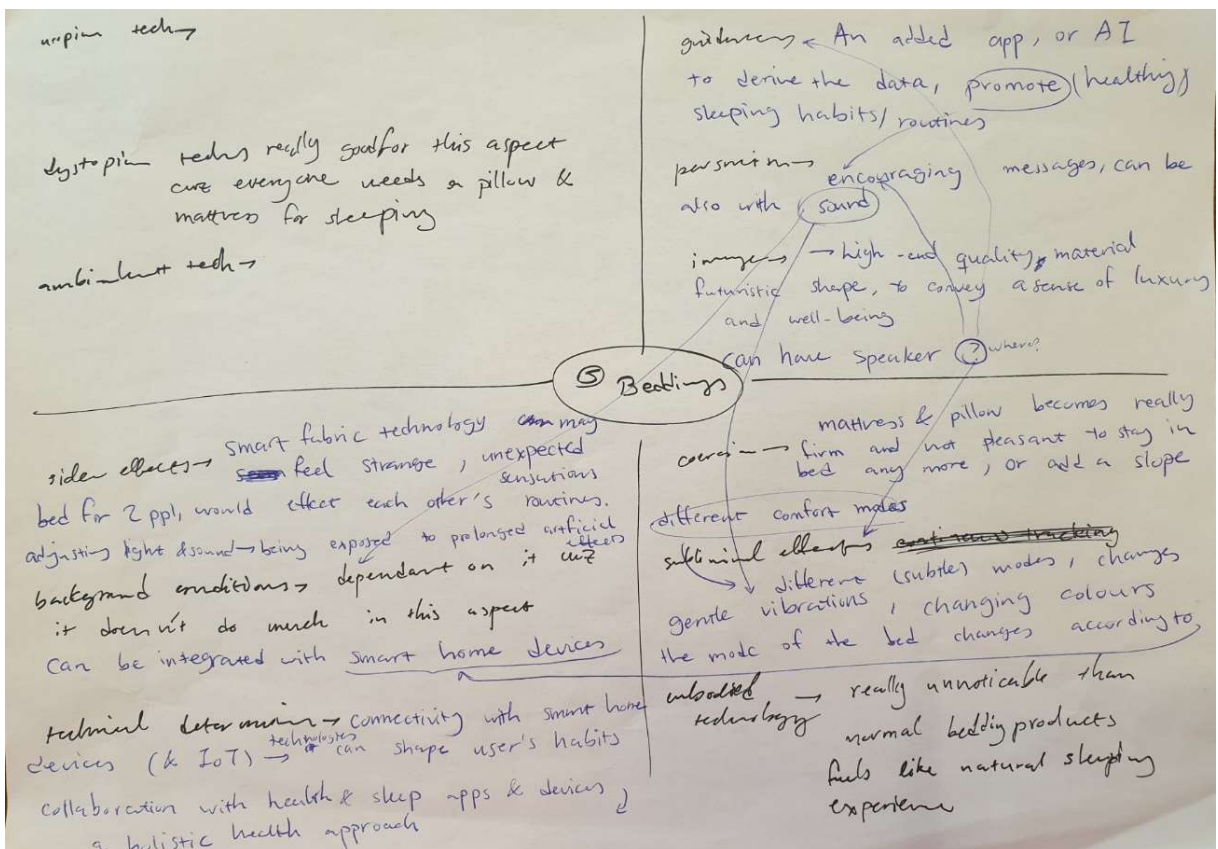 utopian tech→
dystopian techs really good for this aspect
cuz everyone needs a pillow &
mattress for sleeping
ambivalent tech→
guidance→ An added app, or AI
to derive the data, promote (healthy)
sleeping habits/routines
persuasion→
encouraging messages, can be
also with sound
image→ → high-end quality, material
futuristic shape, to convey a sense of luxury
and well-being
can have speaker ? where?
⑤ Beddings
side effects→ smart fabric technology may
feel strange, unexpected
sensations
bed for 2 ppl, would effect each other's routines.
adjusting light & sound→being exposed to prolonged artificial
effects
background conditions→ dependant on it cuz
it doesn't do much in this aspect
can be integrated with smart home devices
technical determinism→ connectivity with smart home
devices (& IoT) → technologies can shape user's habits
collaboration with health & sleep apps & devices
a holistic health approach
mattress & pillow becomes really
coercion→ firm and not pleasant to stay in
bed any more, or add a slope
different comfort modes
subliminal effects continuous tracking
different (subtle) modes, changes
gentle vibrations, changing colours
the mode of the bed changes according to
embodied → really unnoticable than
technology normal bedding products
feels like natural sleeping
experience